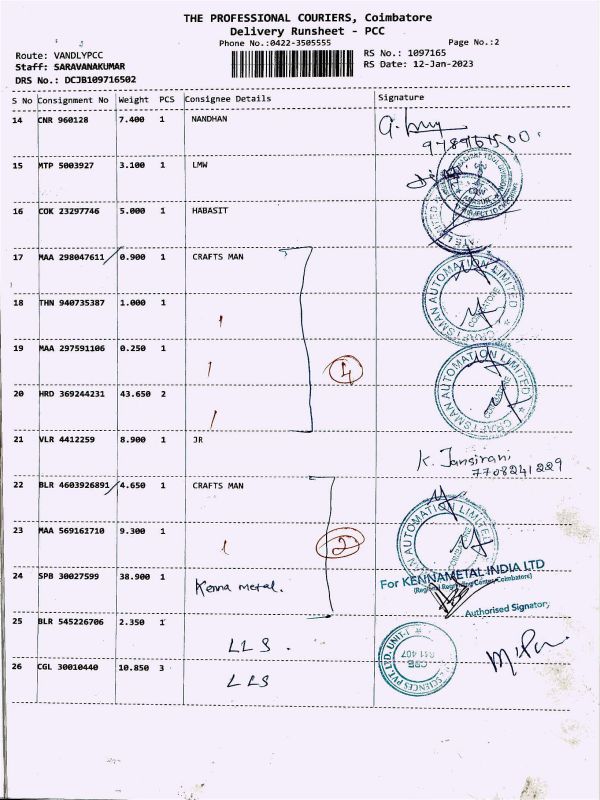 THE PROFESSIONAL COURIERS, Coimbatore
Delivery Runsheet - PCC
Phone No.:0422-3505555 Page No.:2
Route: VANDLYPCC RS No.: 1097165
Staff: SARAVANAKUMAR RS Date: 12-Jan-2023
DRS No.: DCJB109716502
S No Consignment No Weight PCS Consignee Details Signature
14 CNR 960128 7.400 1 NANDHAN
15 MTP 5003927 3.100 1 LMW
16 COK 23297746 5.000 1 HABASIT
17 MAA 298047611 0.900 1 CRAFTS MAN
CRAFTSMAN AUTOMATION LIMITED
COIMBATORE
18 THN 940735387 1.000 1
19 MAA 297591106 0.250 1
4
CRAFTSMAN AUTOMATION LIMITED
20 HRD 369244231 43.650 2
21 VLR 4412259 8.900 1 JR
K. Jansirani
7708241229
22 BLR 4603926891 4.650 1 CRAFTS MAN
AUTOMATION LIMITED
23 MAA 569161710 9.300 1
2
24 SPB 30027599 38.900 1 Kenna metal.
For KENNAMETAL INDIA LTD
(Regional Regrinding Center, Coimbatore)
Authorised Signatory
25 BLR 545226706 2.350 1 LLS.
26 CGL 30010440 10.850 3 LLS
PVT. LTD. UNIT-I
CBE
641 407